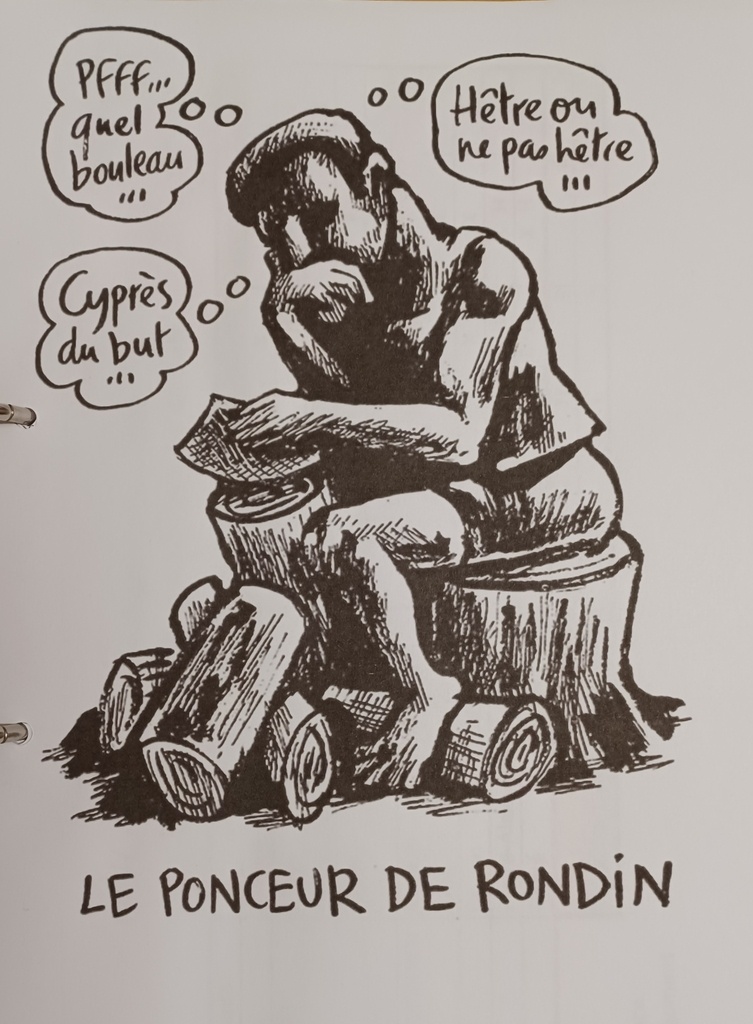 PFFF...
quel
bouleau
...
Hêtre ou
ne pas hêtre
...
Cyprès
du but
...
LE PONCEUR DE RONDIN